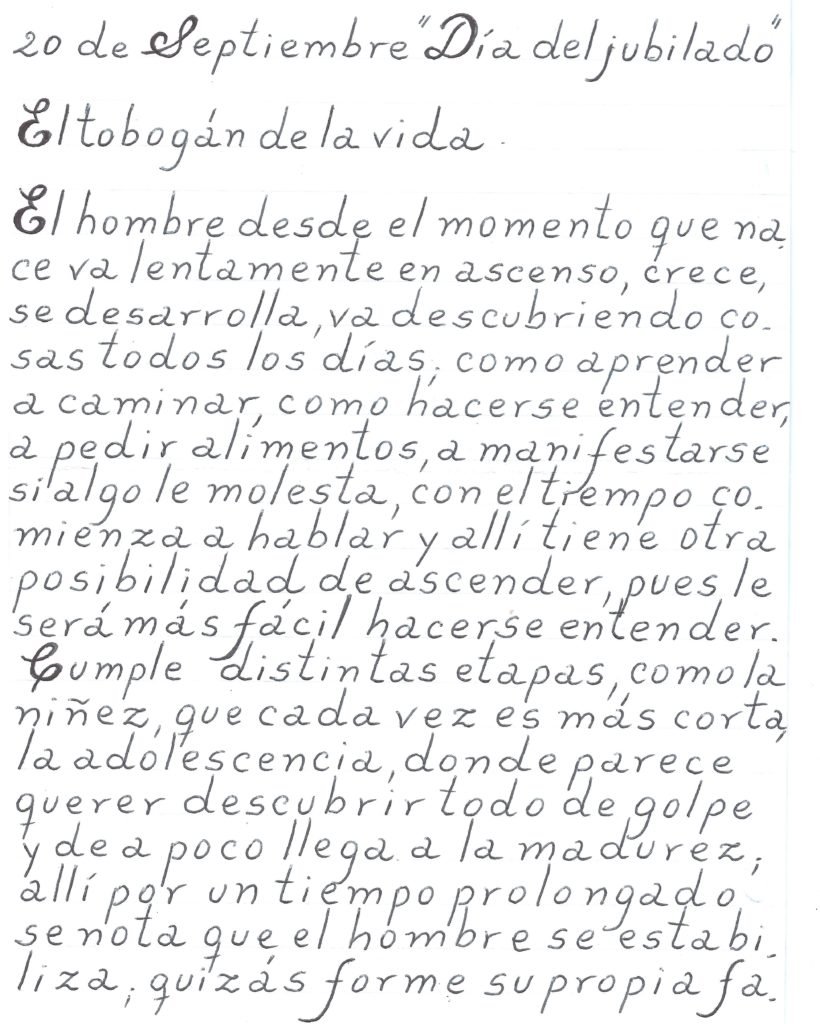 20 de Septiembre "Día del jubilado"
El tobogán de la vida.
El hombre desde el momento que na-
ce va lentamente en ascenso, crece,
se desarrolla, va descubriendo co-
sas todos los días; como aprender
a caminar, como hacerse entender,
a pedir alimentos, a manifestarse
si algo le molesta, con el tiempo co-
mienza a hablar y allí tiene otra
posibilidad de ascender, pues le
será más fácil hacerse entender.
Cumple distintas etapas, como la
niñez, que cada vez es más corta,
la adolescencia, donde parece
querer descubrir todo de golpe
y de a poco llega a la madurez;
allí por un tiempo prolongado
se nota que el hombre se estabi-
liza; quizás forme su propia fa-